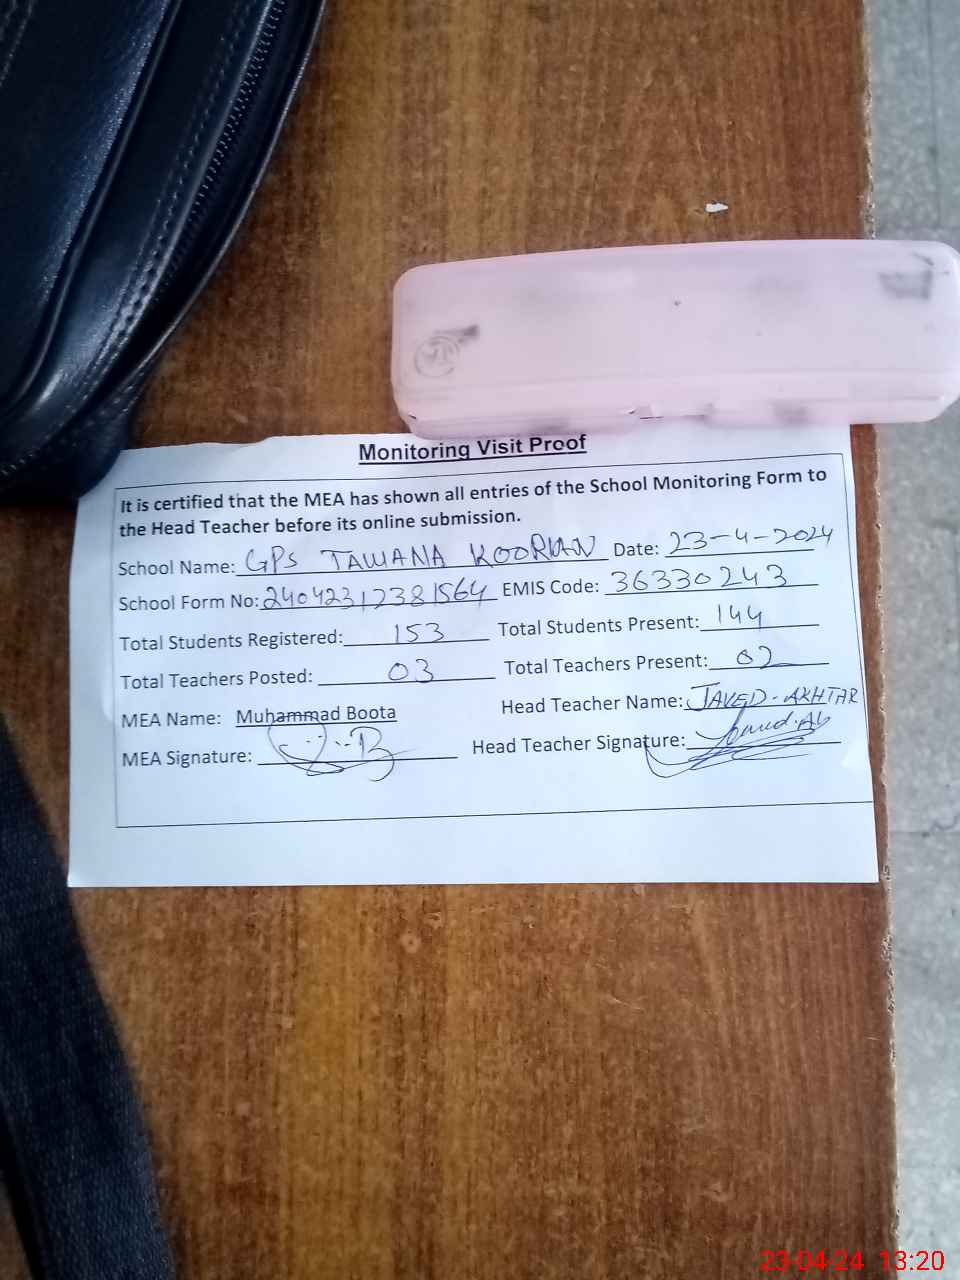 Monitoring Visit Proof
It is certified that the MEA has shown all entries of the School Monitoring Form to
the Head Teacher before its online submission.
School Name: GPS TAWANA KOORIAN Date: 23-4-2024
School Form No: 24042312381564 EMIS Code: 36330243
Total Students Registered: 153 Total Students Present: 144
Total Teachers Posted: 03 Total Teachers Present: 02
MEA Name: Muhammad Boota Head Teacher Name: JAVED-AKHTAR
MEA Signature: Head Teacher Signature:
23-04-24 13:20